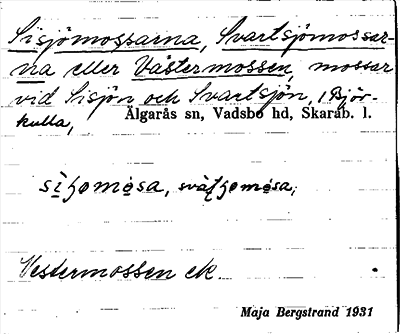 Sisjömossarna, Svartsjömossar-
na eller Västermossen, mossar
vid Sisjön och Svartsjön, / Björ-
kulla, Älgarås sn, Vadsbo hd, Skarab. l.
Vestermossen ek.
Maja Bergstrand 1931